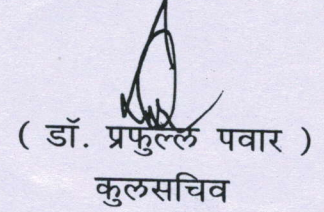 ( डॉ. प्रफुल्ल पवार )
कुलसचिव